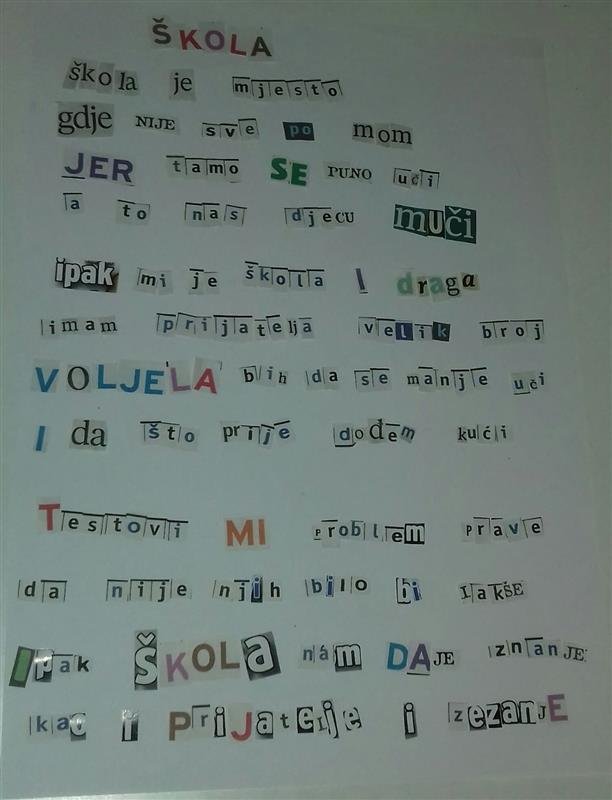 ŠKOLA
škola je mjesto
gdje NIJE sve po mom
JER tamo SE PUNO uči
a to nas djecu muči
ipak mi je škola I draga
imam prijatelja velik broj
VOLJELA bih da se manje uči
I da što prije dođem kući
Testovi MI problem prave
da nije njih bilo bi LakŠE
Ipak ŠKOLa nám DAJE znanJE
kao i PriJateljE i zezanjE